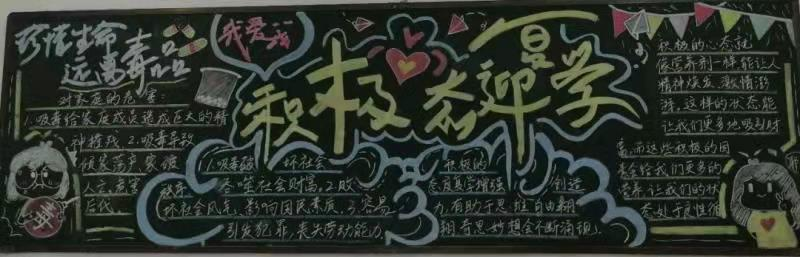 珍惜生命
远离毒品
我爱我
积极态迎夏学
对家庭的危害:
1.吸毒给家庭成员造成巨大的精
神摧残 2.吸毒导致
倾家荡产 家破
人亡 危害
后代
1.吸毒破坏社会
秩序 吞噬社会财富,2.败
坏社会风气,影响国民素质,3.容易
引发犯罪,丧失劳动能力
积极的
态度是学增强 创造
力,有助于思维自由翱
翔,奇思妙想会不断涌现.
积极的心态就
像营养剂一样,能让人
精神焕发,激情澎
湃,这样的状态能
让我们更多地吸引财
富,而这些积极的因
素会给我们更多的
营养,让我们的状
态处于良性循